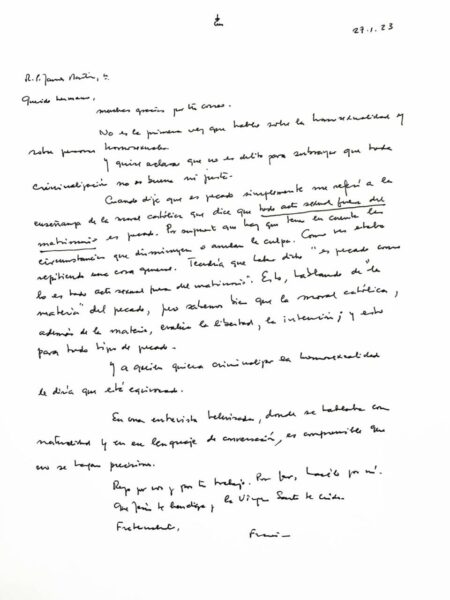 27.1.23
R.P. James Martin, sj.
Querido hermano,
muchas gracias por tu correo.
No es la primera vez que hablo sobre la homosexualidad y
sobre personas homosexuales.
Y quise aclarar que no es delito para subrayar que toda
criminalización no es buena ni justa.
Cuando dije que es pecado simplemente me referí a la
enseñanza de la moral católica que dice que todo acto sexual fuera del
matrimonio es pecado. Por supuesto que hay que tener en cuenta las
circunstancias que disminuyen o anulan la culpa. Como ves estaba
repitiendo una cosa general. Tendría que haber dicho "es pecado como
lo es todo acto sexual fuera del matrimonio". Esto, hablando de "la
materia" del pecado, pero sabemos bien que la moral católica,
además de la materia, evalúa la libertad, la intención; y esto
para todo tipo de pecado.
Y a quien quiera criminalizar la homosexualidad
le diría que está equivocado.
En una entrevista televisada, donde se hablaba con
naturalidad y en un lenguaje de conversación, es comprensible que
no se hagan precisiones.
Rezo por vos y por tu trabajo. Por favor, hacelo por mí.
Que Jesús te bendiga y la Virgen Santa te cuide.
Fraternalmente,